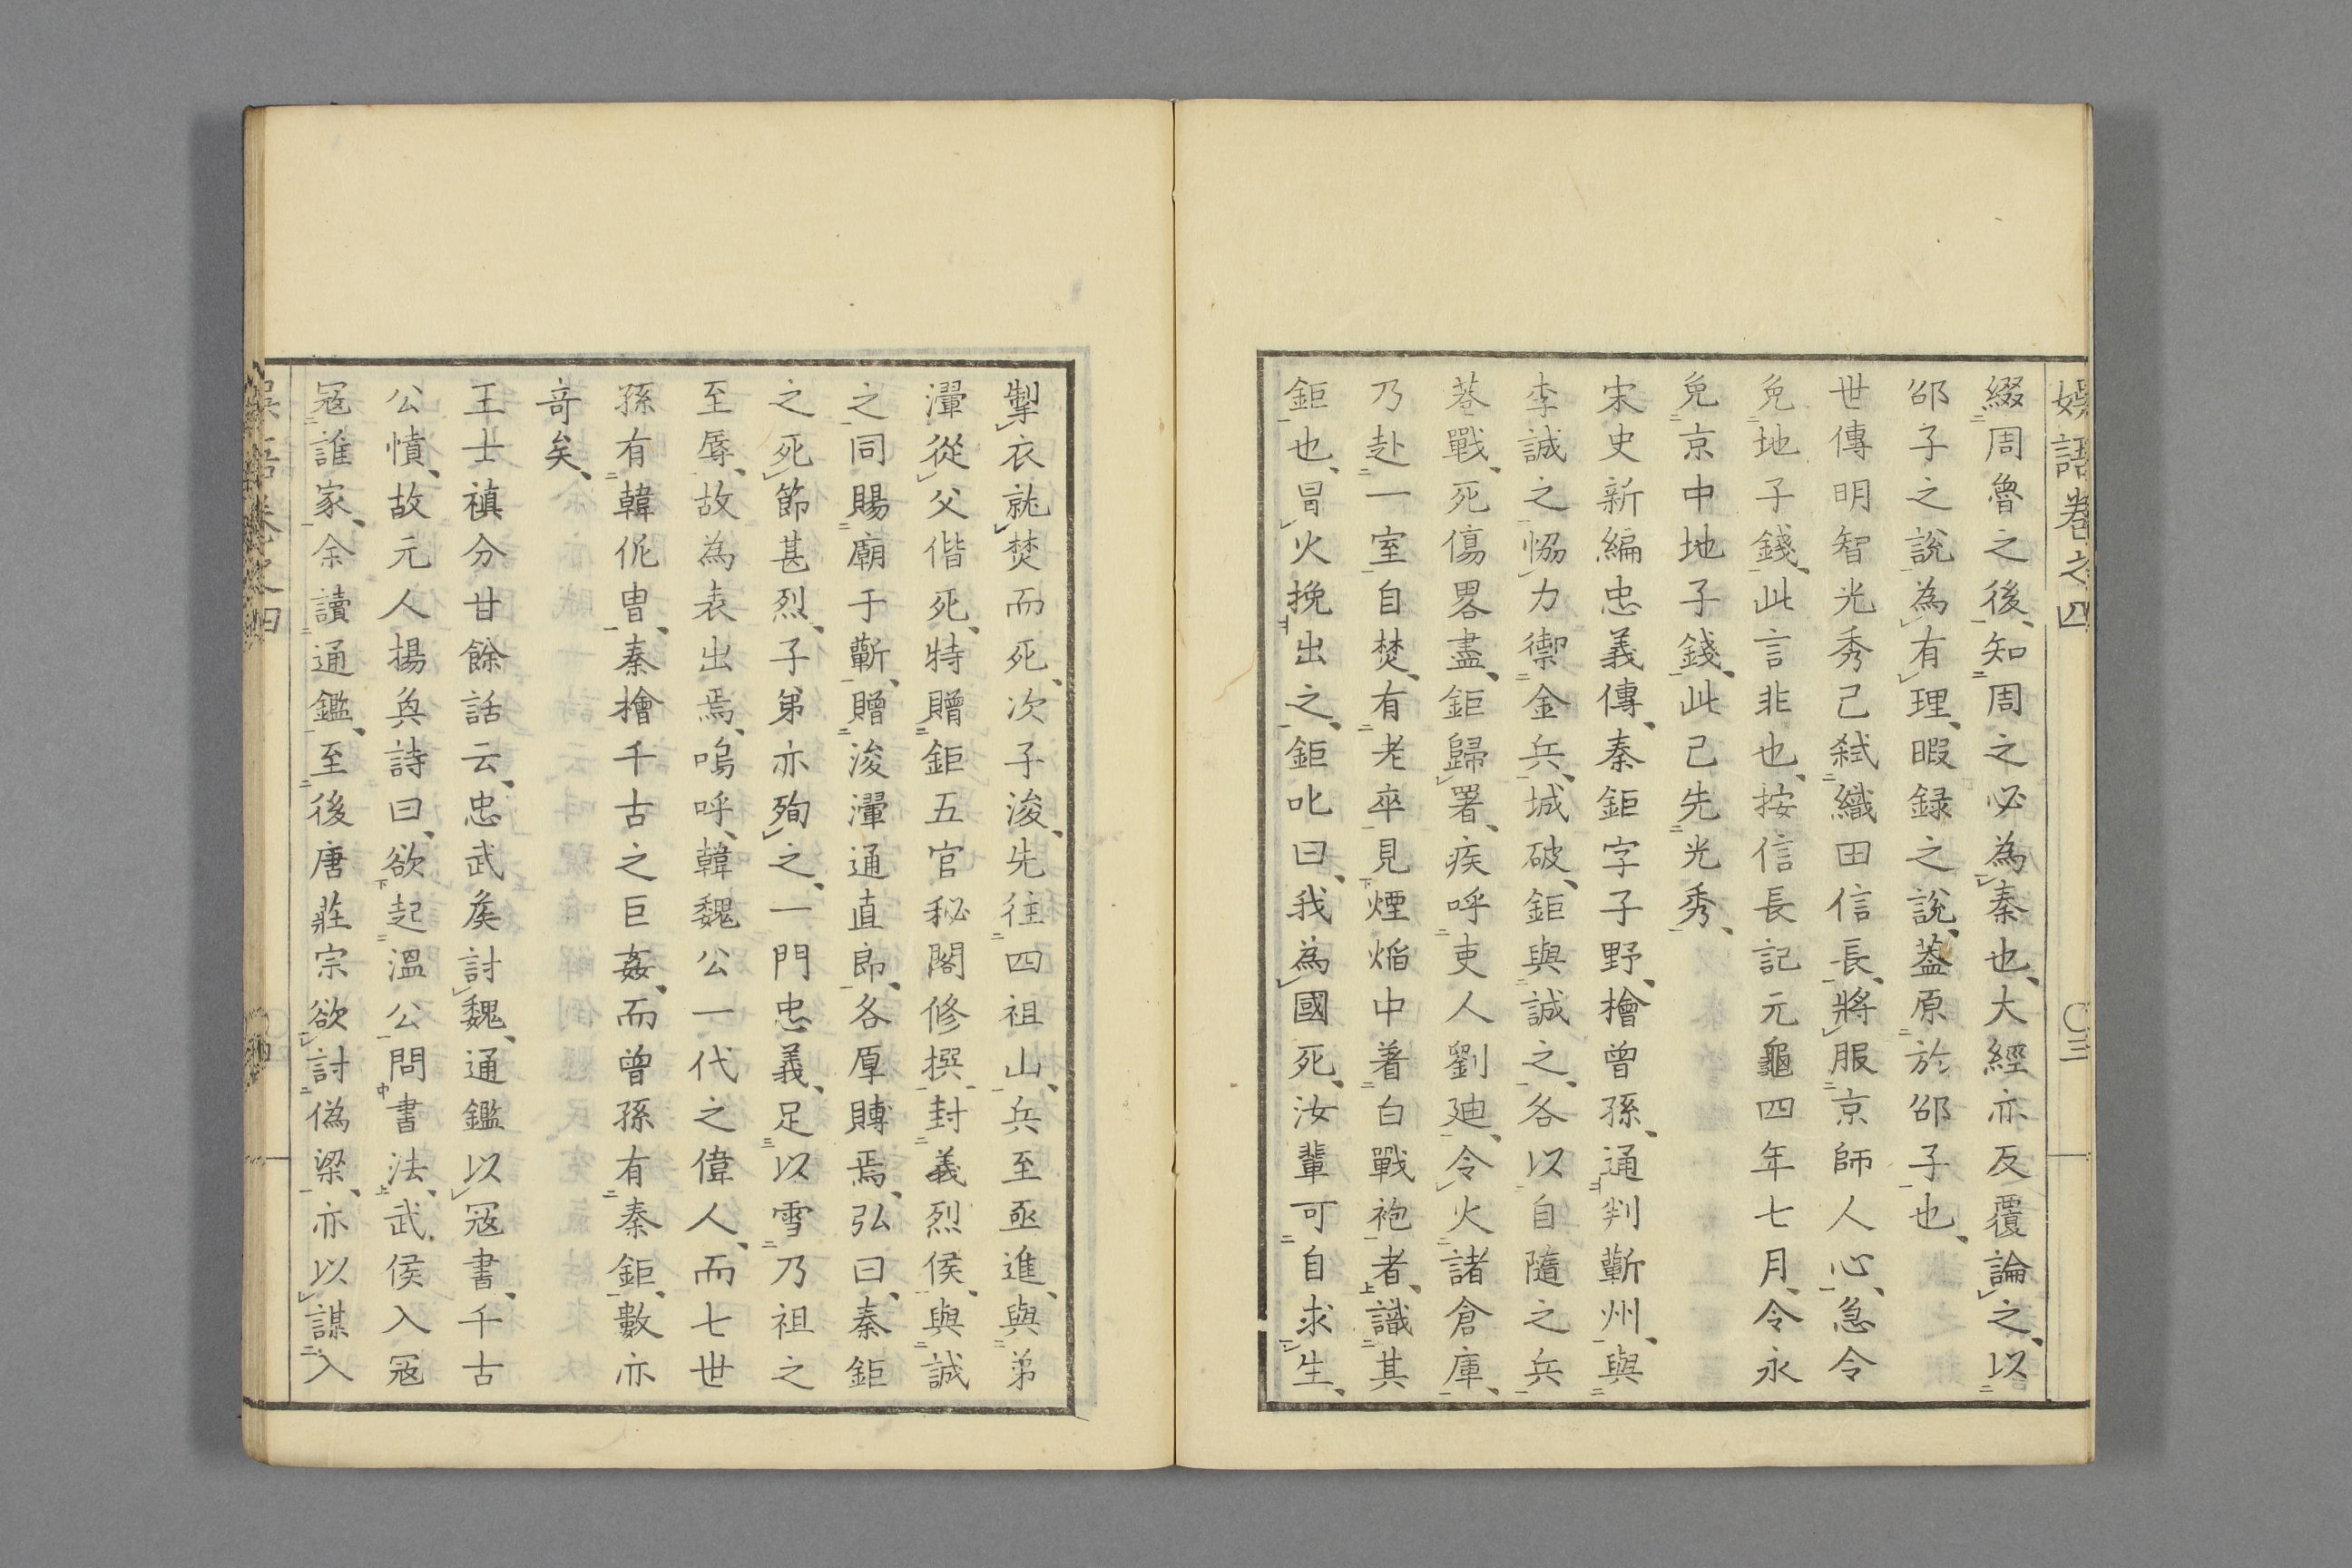 娯語卷之四 〇三
綴周魯之後、知周之必為秦也、大經亦反覆論之、以
邵子之說為有理、暇録之說、蓋原於邵子也、
世傳明智光秀己弒織田信長、將服京師人心、急令
免地子錢、此言非也、按信長記元龜四年七月、令永
免京中地子錢、此己先光秀、
宋史新編忠義傳、秦鉅字子野、檜曾孫、通判蘄州、與
李誠之恊力禦金兵、城破、鉅與誠之、各以自隨之兵
巷戰、死傷畧盡、鉅歸署、疾呼吏人劉廸、令火諸倉庫、
乃赴一室自焚、有老卒見煙焔中着白戰袍者、識其
鉅也、冒火挽出之、鉅叱曰、我為國死、汝輩可自求生、
掣衣就焚而死、次子浚、先往四祖山、兵至亟進、與弟
瀈從父偕死、特贈鉅五官秘閣修撰、封義烈侯、與誠
之同賜廟于蘄、贈浚瀈通直郎、各厚賻焉、弘曰、秦鉅
之死節甚烈、子弟亦殉之、一門忠義、足以雪乃祖之
至辱、故為表出焉、嗚呼、韓魏公一代之偉人、而七世
孫有韓侂冑、秦檜千古之巨姦、而曾孫有秦鉅、數亦
竒矣、
王士禛分甘餘話云、忠武矦討魏、通鑑以冦書、千古
公憤、故元人揚奐詩曰、欲起溫公問書法、武侯入冦
冦誰家、余讀通鑑、至後唐莊宗欲討偽梁、亦以謀入
娯語卷之四